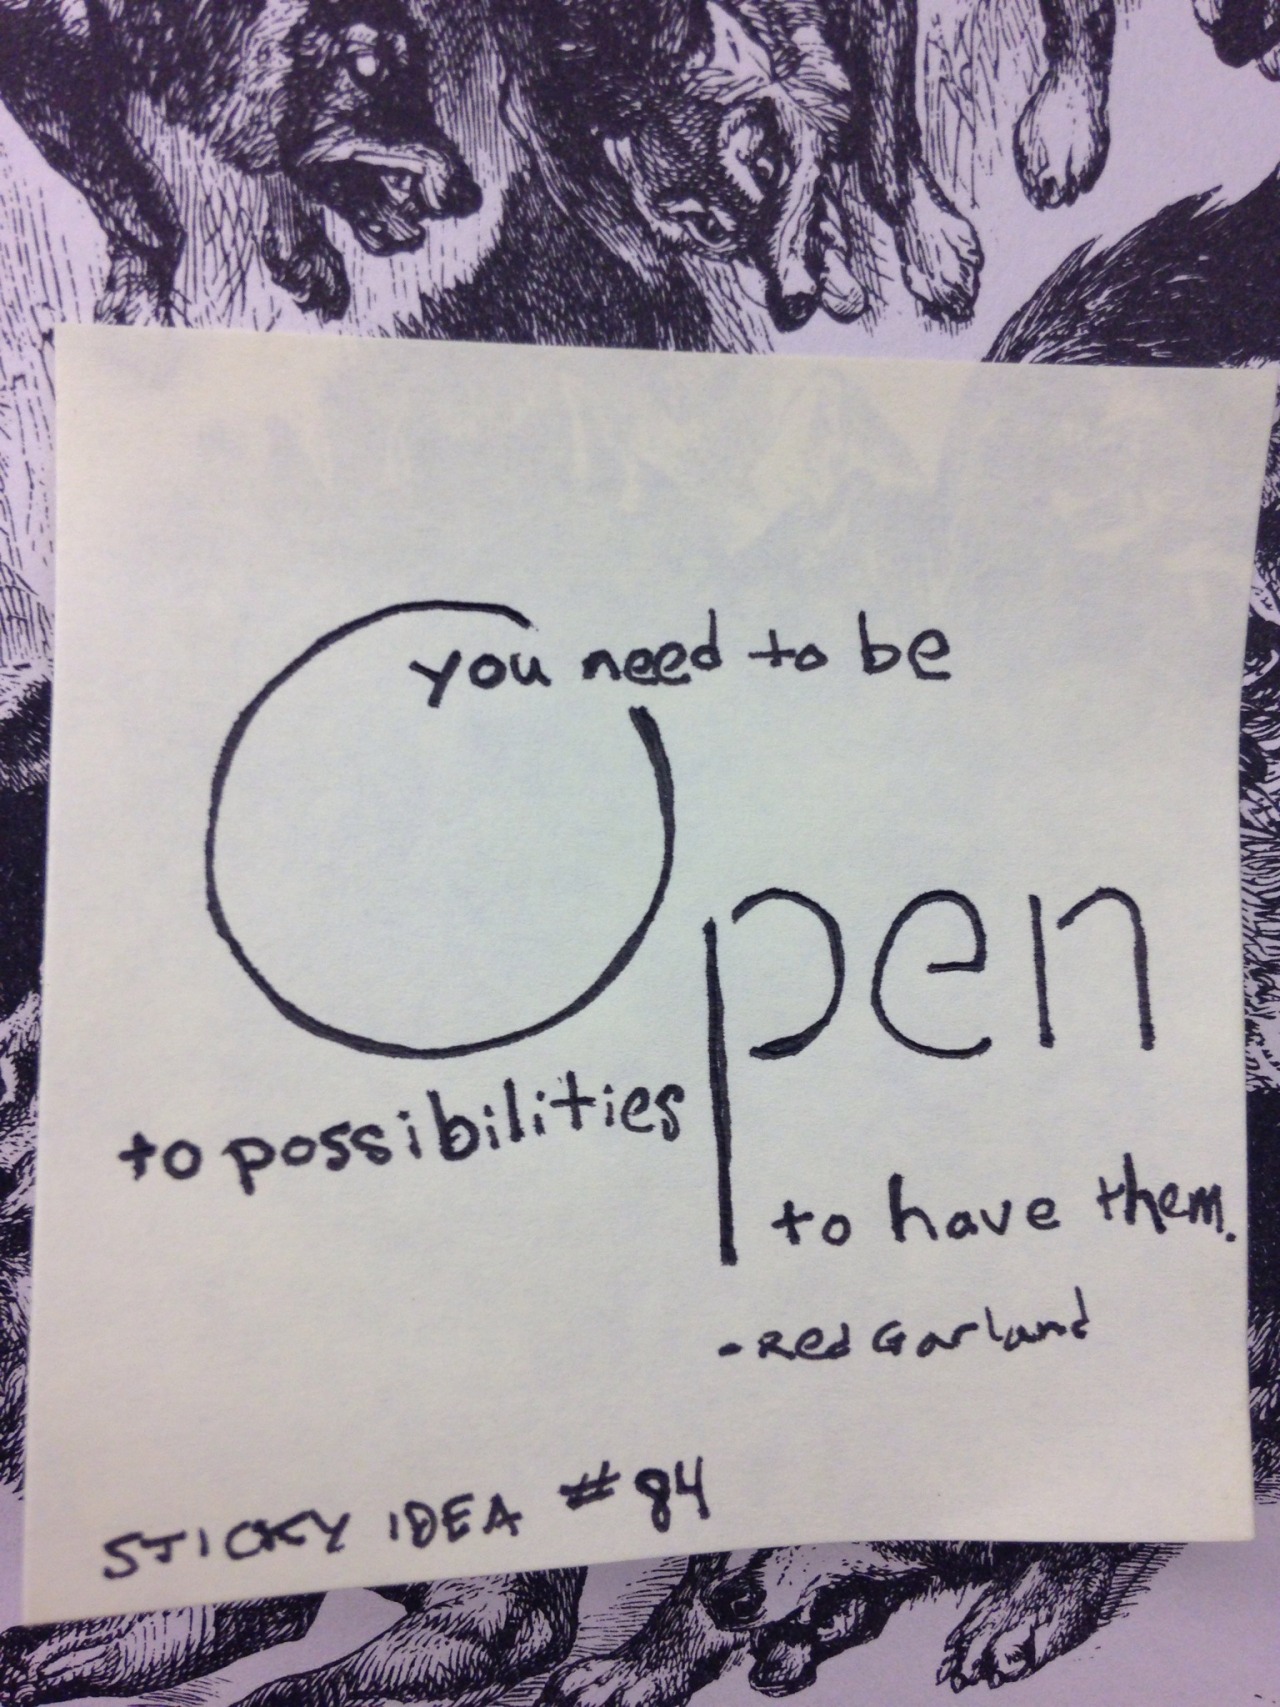 you need to be
Open
to possibilities
to have them.
- Red Garland
STICKY IDEA # 84